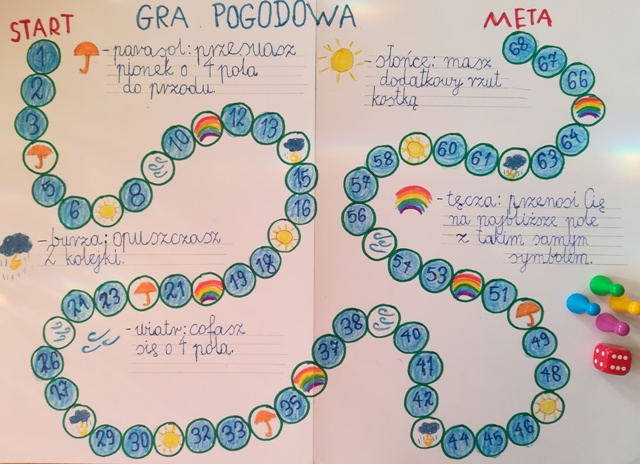 START
GRA POGODOWA
META
- parasol: przesuasz
pionek o 4 pola
do przodu.
- słońce: masz
dodatkowy rzut
kostką
- burza: opuszczasz
2 kolejki.
- tęcza: przenosi Cię
na najbliższe pole
z takim samym
symbolem.
- wiatr: cofasz
się o 4 pola.
1
2
3
5
6
8
10
12
13
15
16
18
19
21
23
24
26
27
29
30
32
33
35
37
38
40
41
42
44
45
46
48
49
51
53
54
56
57
58
60
61
63
64
66
67
68